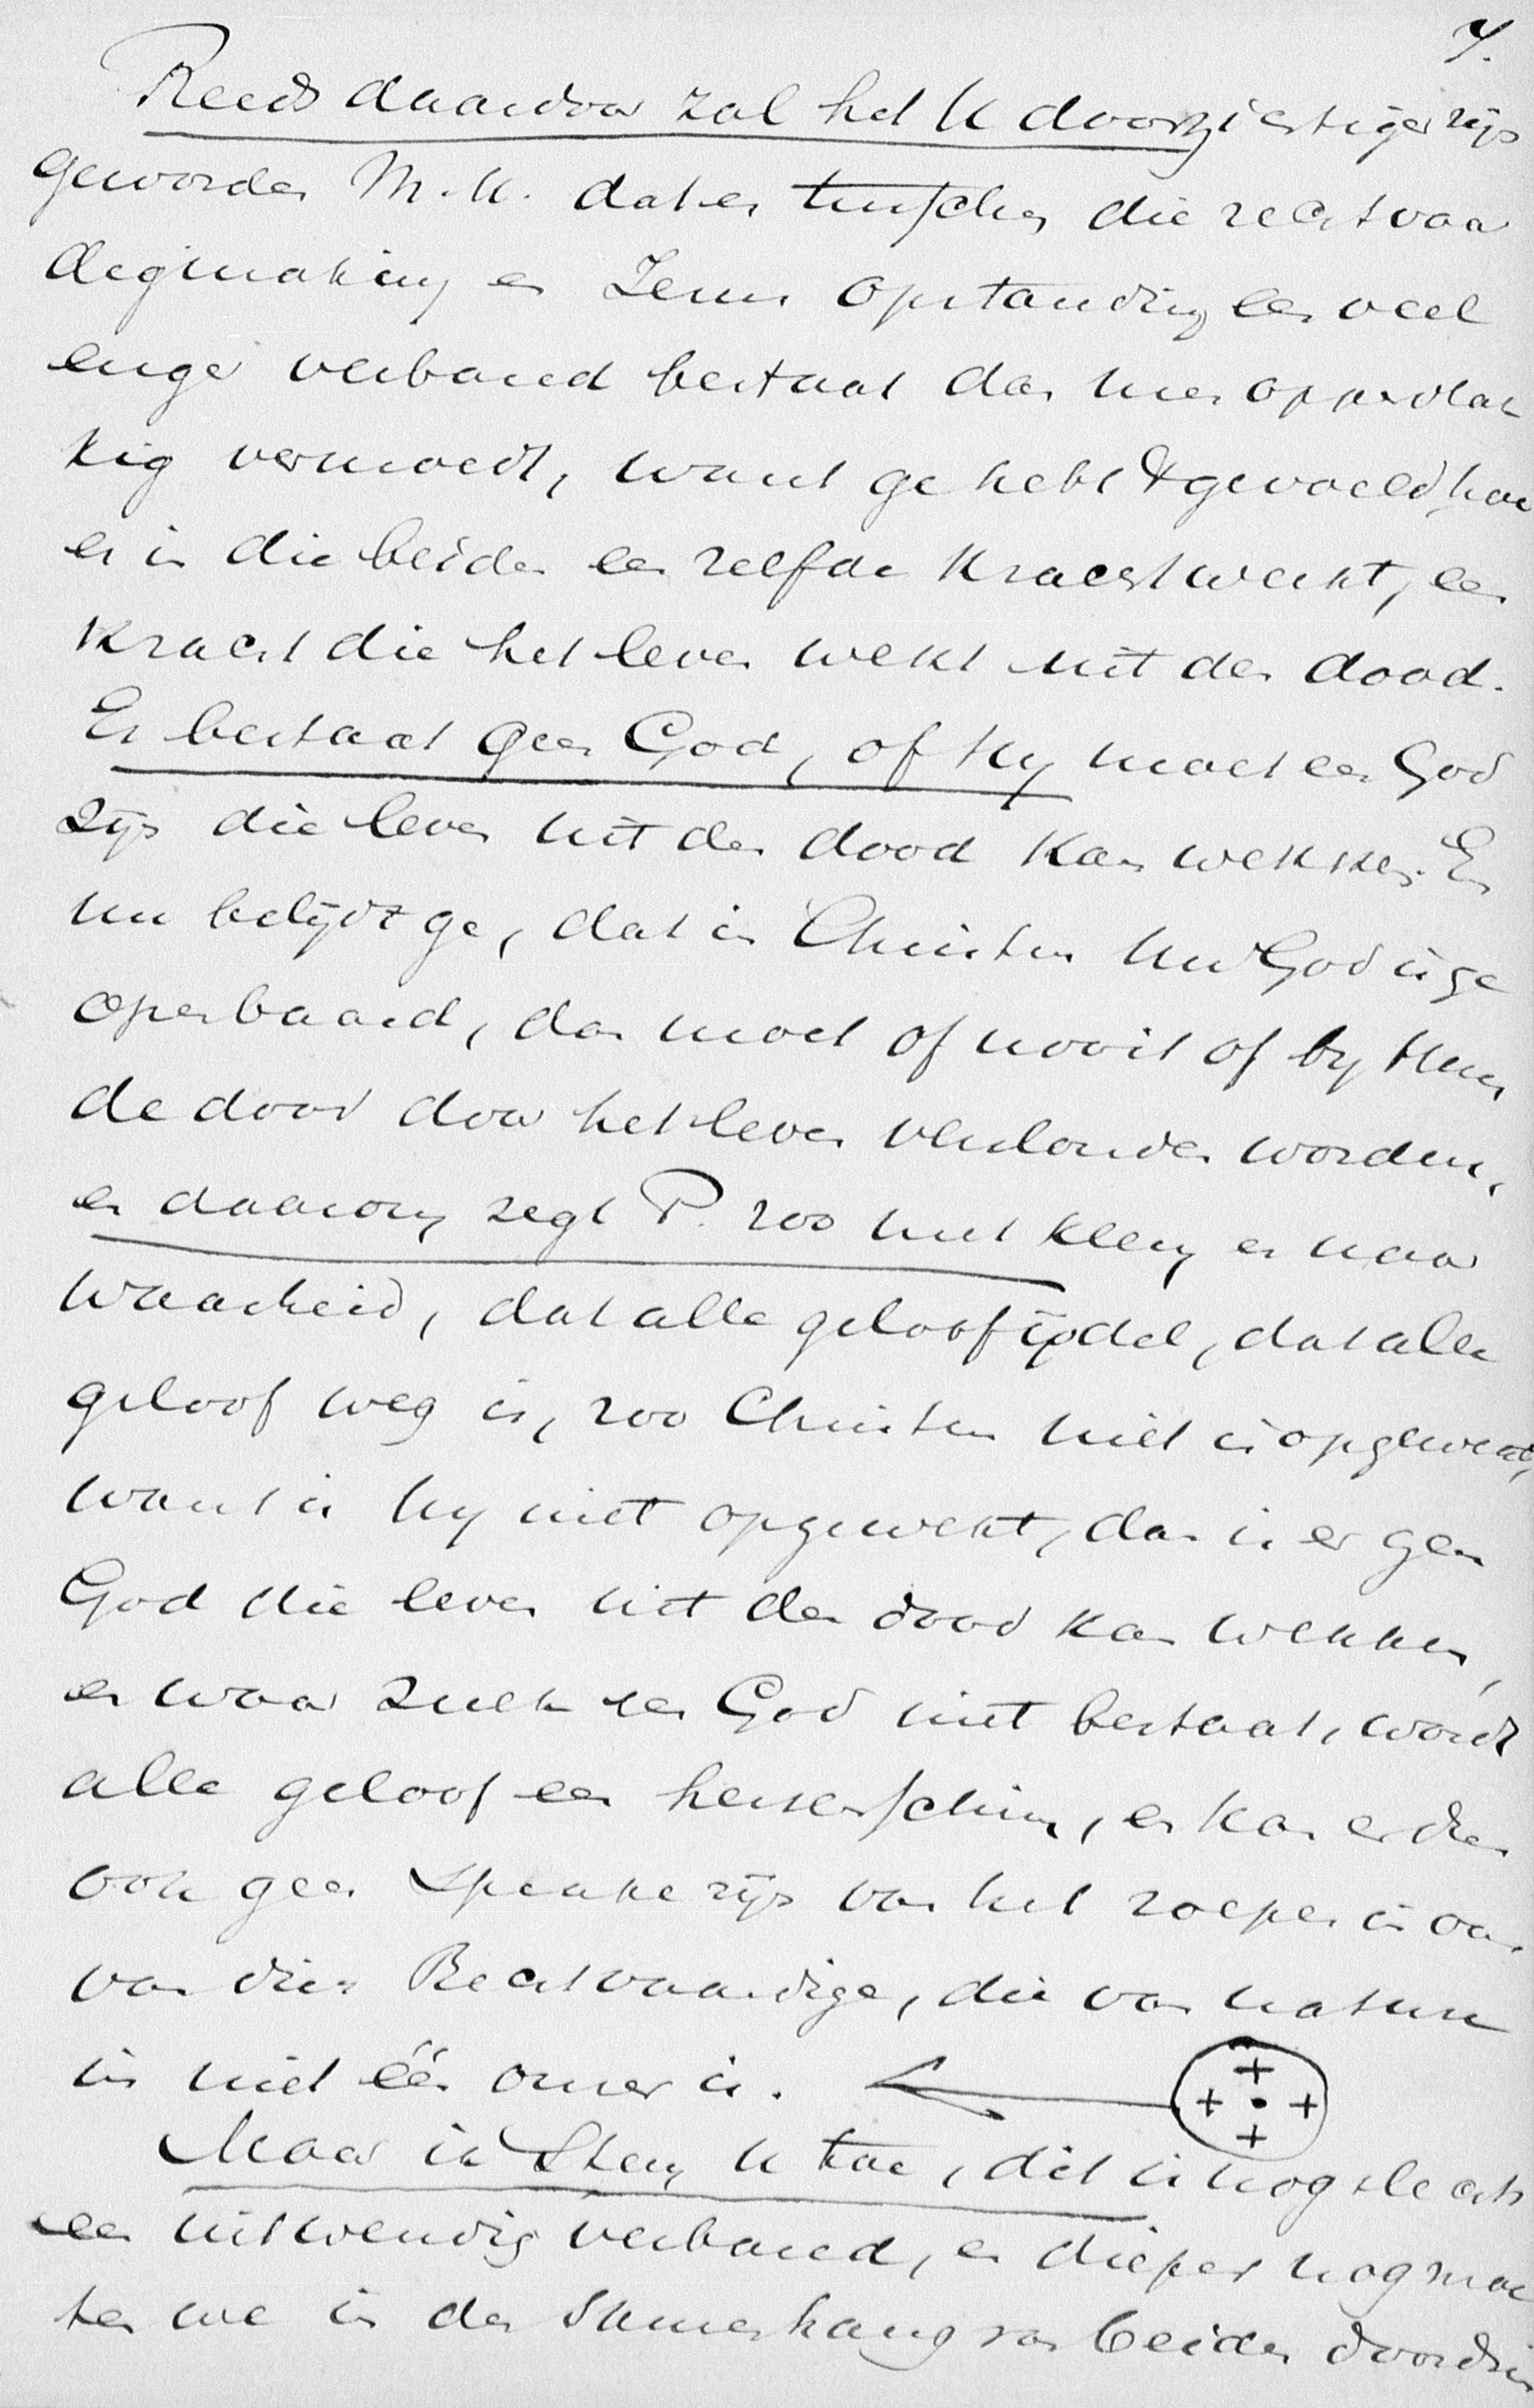 7.
Reeds daardoor zal het U doorzichtiger zijn
geworden M. H. dat er tusschen die rechtvaar
digmaking en Jezus opstanding een veel
enger verband bestaat dan men oppervlak
kig vermoedt, want ge hebt gevoeld, hoe
er in die beiden een zelfde kracht werkt, een
kracht die het leven wekt uit den dood.
Er bestaat geen God, of Hij moet een God
zijn die leven uit den dood kan wekken. En
nu belijdt ge, dat in Christus Uw God is ge
openbaard, dan moet of nooit of by Hem
de dood door het leven verslonden worden,
en daarom zegt P. zoo met klem en naar
waarheid, dat alle geloof ijdel, dat alle
geloof weg is, zoo Christus niet is opgewekt,
want is hy niet opgewekt, dan is er geen
God die leven uit den dood kan wekken,
en waar zulk een God niet bestaat, wordt
alle geloof een hersenschim, en kan er dan
ook geen sprake zijn van het roepen in ons
van dien Rechtvaardige, die van nature
in niet één onzer is.
Maar ik stem U toe, dit is nog slechts
een uitwendig verband, en dieper nog moe
ten we in den samenhang van beiden doordrin